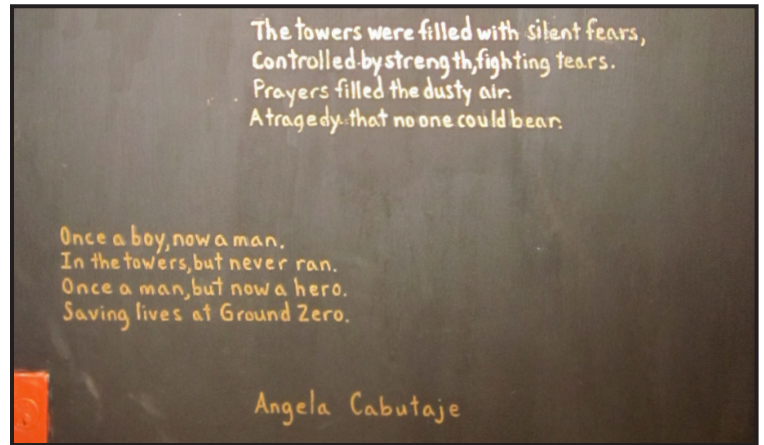 The towers were filled with silent fears,
Controlled by strength, fighting tears.
Prayers filled the dusty air.
A tragedy that no one could bear.
Once a boy, now a man.
In the towers, but never ran.
Once a man, but now a hero.
Saving lives at Ground Zero.
Angela Cabutaje